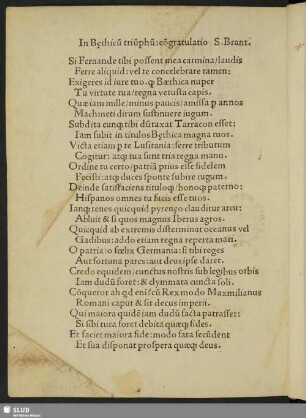 In Bęthicũ triũphũ: cõgratulatio S. Brant.
Si Fernande tibi possent mea carmina/laudis
Ferre aliquid: vel te concelebrare tamen:
Exigeres id iure tuo. q Bæthica nuper
Tu virtute tua/regna vetusta capis.
Quæ iam mille/minus paucis/amissa p annos
Machmeti dirum sustinuere iugum.
Subdita cunq tibi dũtaxat Tarracon esset:
Iam subit in titulos Bęthica magna tuos.
Victa etiam p te Lusitania: ferre tributum
Cogitur: atq tua sunt tria regna manu.
Ordine tu certo/patriã prius esse fidelem
Fecisti: atq duces sponte subire iugum.
Deinde satisfaciens tituloq bonoq paterno:
Hispanos omnes tu facis esse tuos.
Ianq tenes quicquid pyrenęo clauditur arcu:
Abluit & si quos magnus Iberus agros.
Quicquid ab extremis disterminat oceanus vel
Gadibus: addo etiam regna reperta mari.
O patria: o fœlix Germania: si tibi reges
Aut fortuna pares: aut deus ipse daret.
Credo equidem: cunctus nostris sub legibus orbis
Iam dudũ foret: & dymmata cuncta soli.
Cõqueror ah qd eni: cũ Rex modo Maxmilianus
Romani caput & sit decus imperii.
Qui maiora quidẽ iam dudũ facta patrasset:
Si sibi tuta foret debita quæq fides.
Et faciet maiora fide: modo fata secũdent
Et sua disponat prospera quæq deus.
SLUB